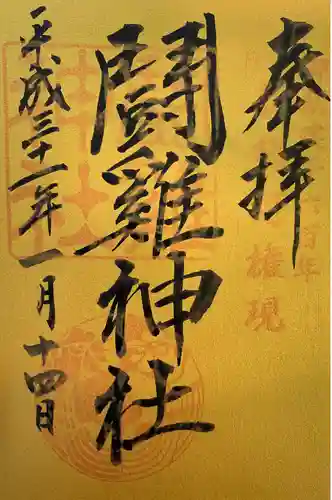 奉拝
権現
鬪雞神社
平成三十一年一月十四日